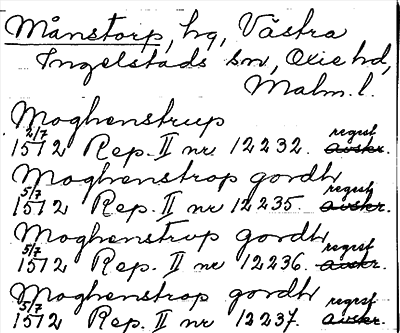 Månstorp, hg, Västra
Ingelstads sn, Oxie hd,
Malm. l.
Moghenstrup
2/7 1512 Rep. II nr 12232. regest avskr.
Moghenstrop gordh
5/7 1512 Rep. II nr 12235. regest avskr.
Moghenstrup gordh
5/7 1512 Rep. II nr 12236. regest avskr.
Moghenstrop gordh
5/7 1512 Rep. II nr 12237. regest avskr.